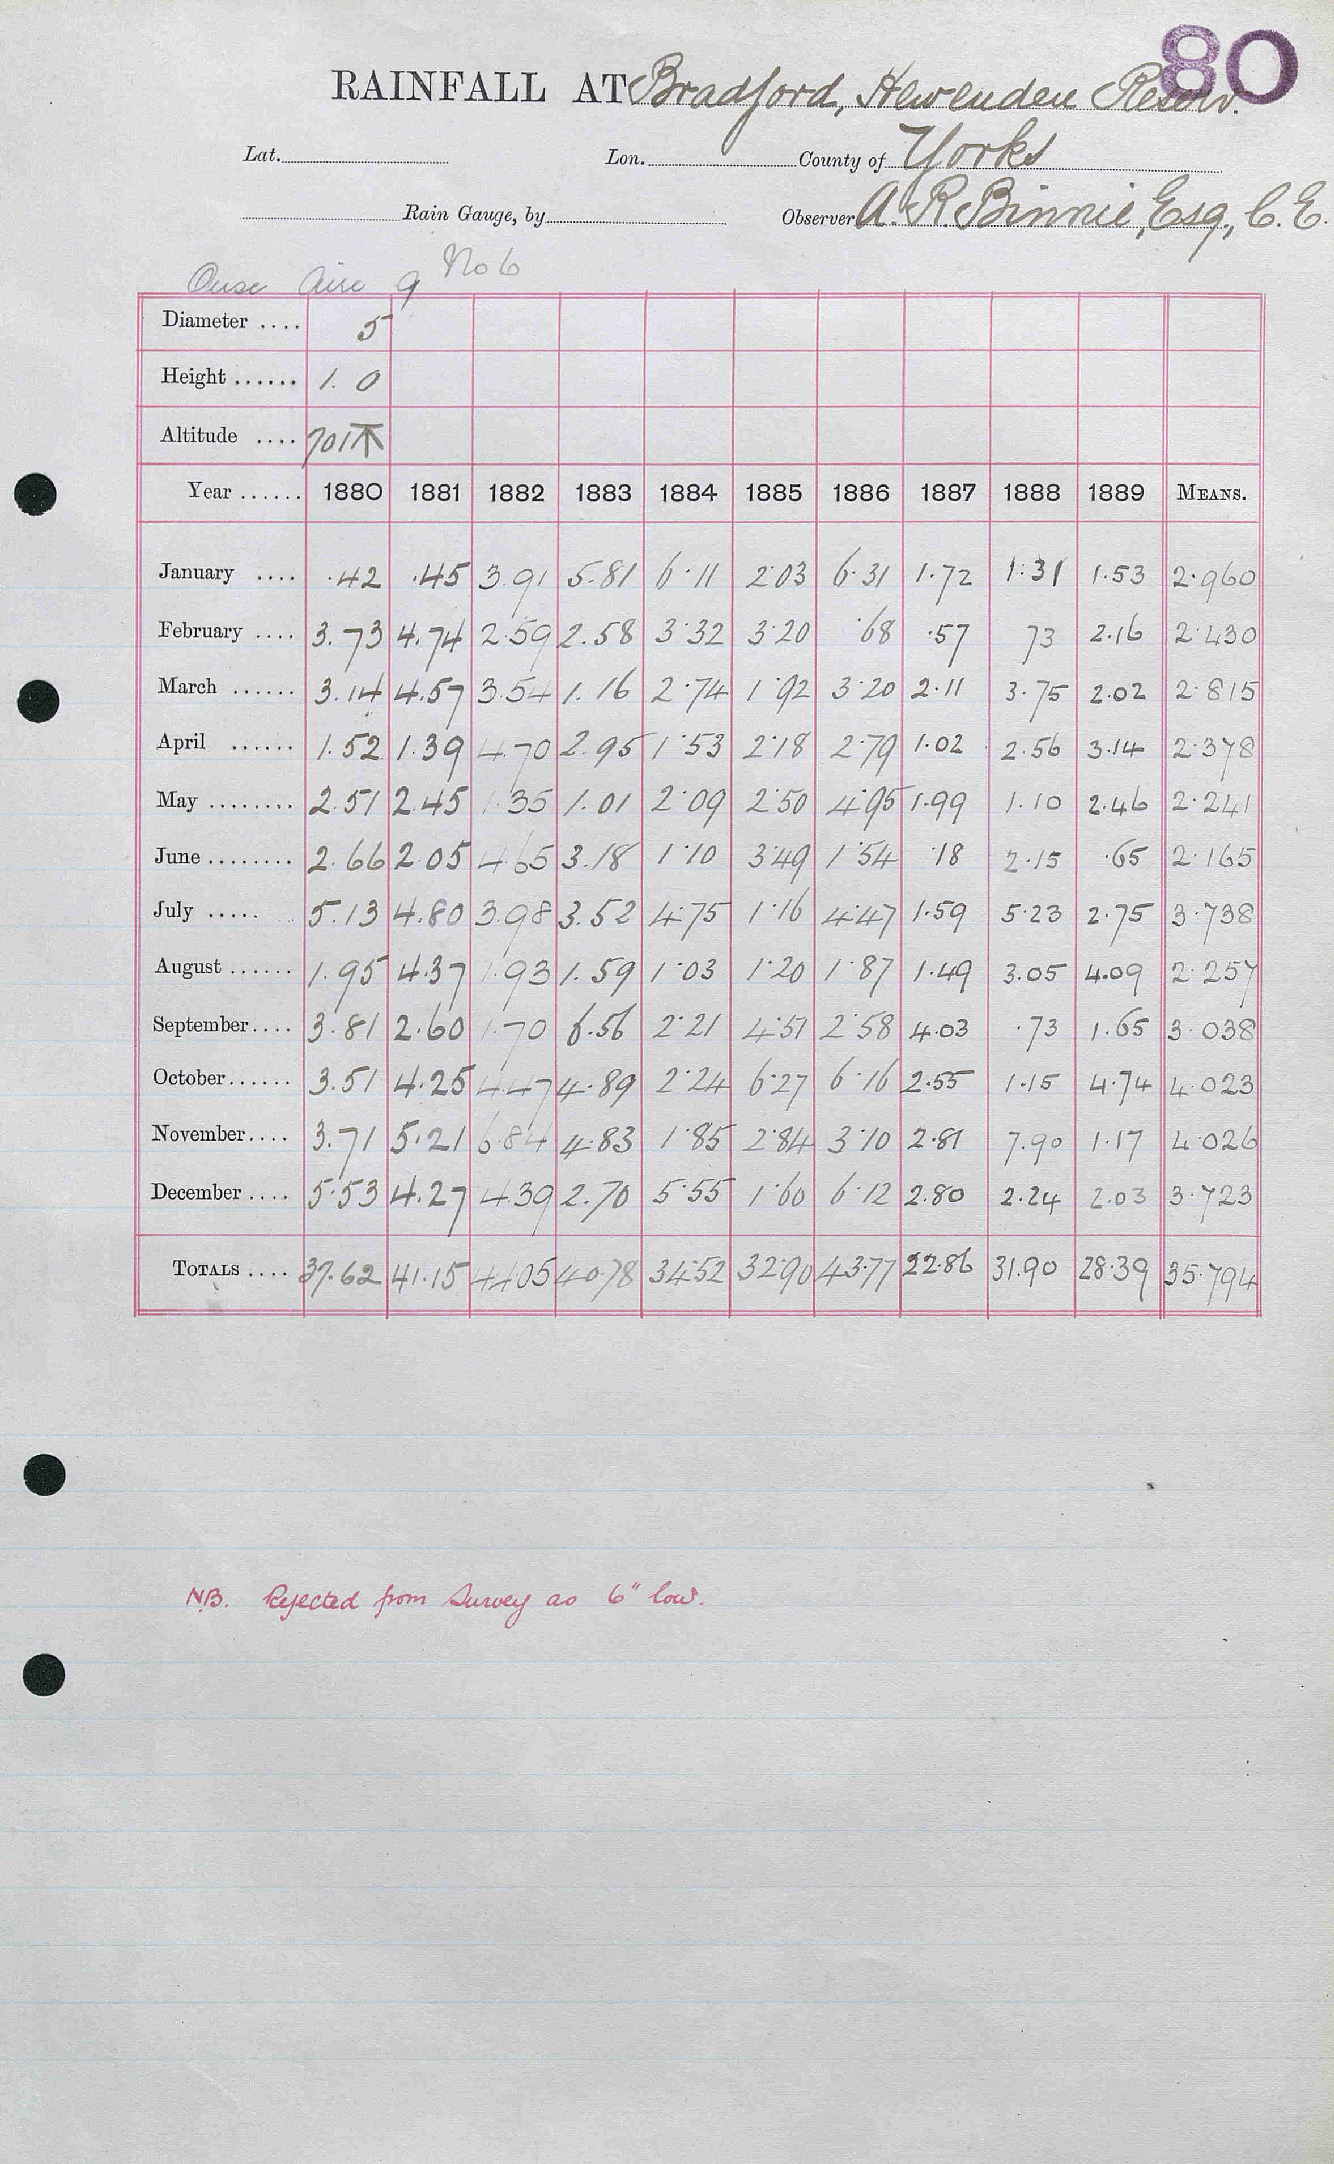 80
RAINFALL AT Bradford, Hewenden Reserv.
Lat. Lon. County of Yorks
Rain Gauge, by Observer A. R. Binnie, Esq., C.E.
Ouse Aire 9 No 6
Diameter .... 5
Height ...... 1. 0
Altitude .... 701
Year ...... 1880 1881 1882 1883 1884 1885 1886 1887 1888 1889 MEANS.
January .... .42 .45 3.91 5.81 6.11 2.03 6.31 1.72 1.31 1.53 2.960
February .... 3.73 4.74 2.59 2.58 3.32 3.20 .68 .57 73 2.16 2.430
March ...... 3.14 4.57 3.54 1.16 2.74 1.92 3.20 2.11 3.75 2.02 2.815
April ...... 1.52 1.39 4.70 2.95 1.53 2.18 2.79 1.02 2.56 3.14 2.378
May ........ 2.51 2.45 1.35 1.01 2.09 2.50 4.95 1.99 1.10 2.46 2.241
June ........ 2.66 2.05 4.65 3.18 1.10 3.49 1.54 .18 2.15 .65 2.165
July ..... 5.13 4.80 3.98 3.52 4.75 1.16 4.47 1.59 5.23 2.75 3.738
August ...... 1.95 4.37 1.93 1.59 1.03 1.20 1.87 1.49 3.05 4.09 2.257
September.... 3.81 2.60 1.70 6.56 2.21 4.51 2.58 4.03 .73 1.65 3.038
October...... 3.51 4.25 4.47 4.89 2.24 6.27 6.16 2.55 1.15 4.74 4.023
November.... 3.71 5.21 6.84 4.83 1.85 2.84 3.10 2.81 7.90 1.17 4.026
December .... 5.53 4.27 4.39 2.70 5.55 1.60 6.12 2.80 2.24 2.03 3.723
TOTALS .... 37.62 41.15 44.05 40.78 34.52 32.90 43.77 22.86 31.90 28.39 35.794
NB. Rejected from Survey as 6" low.